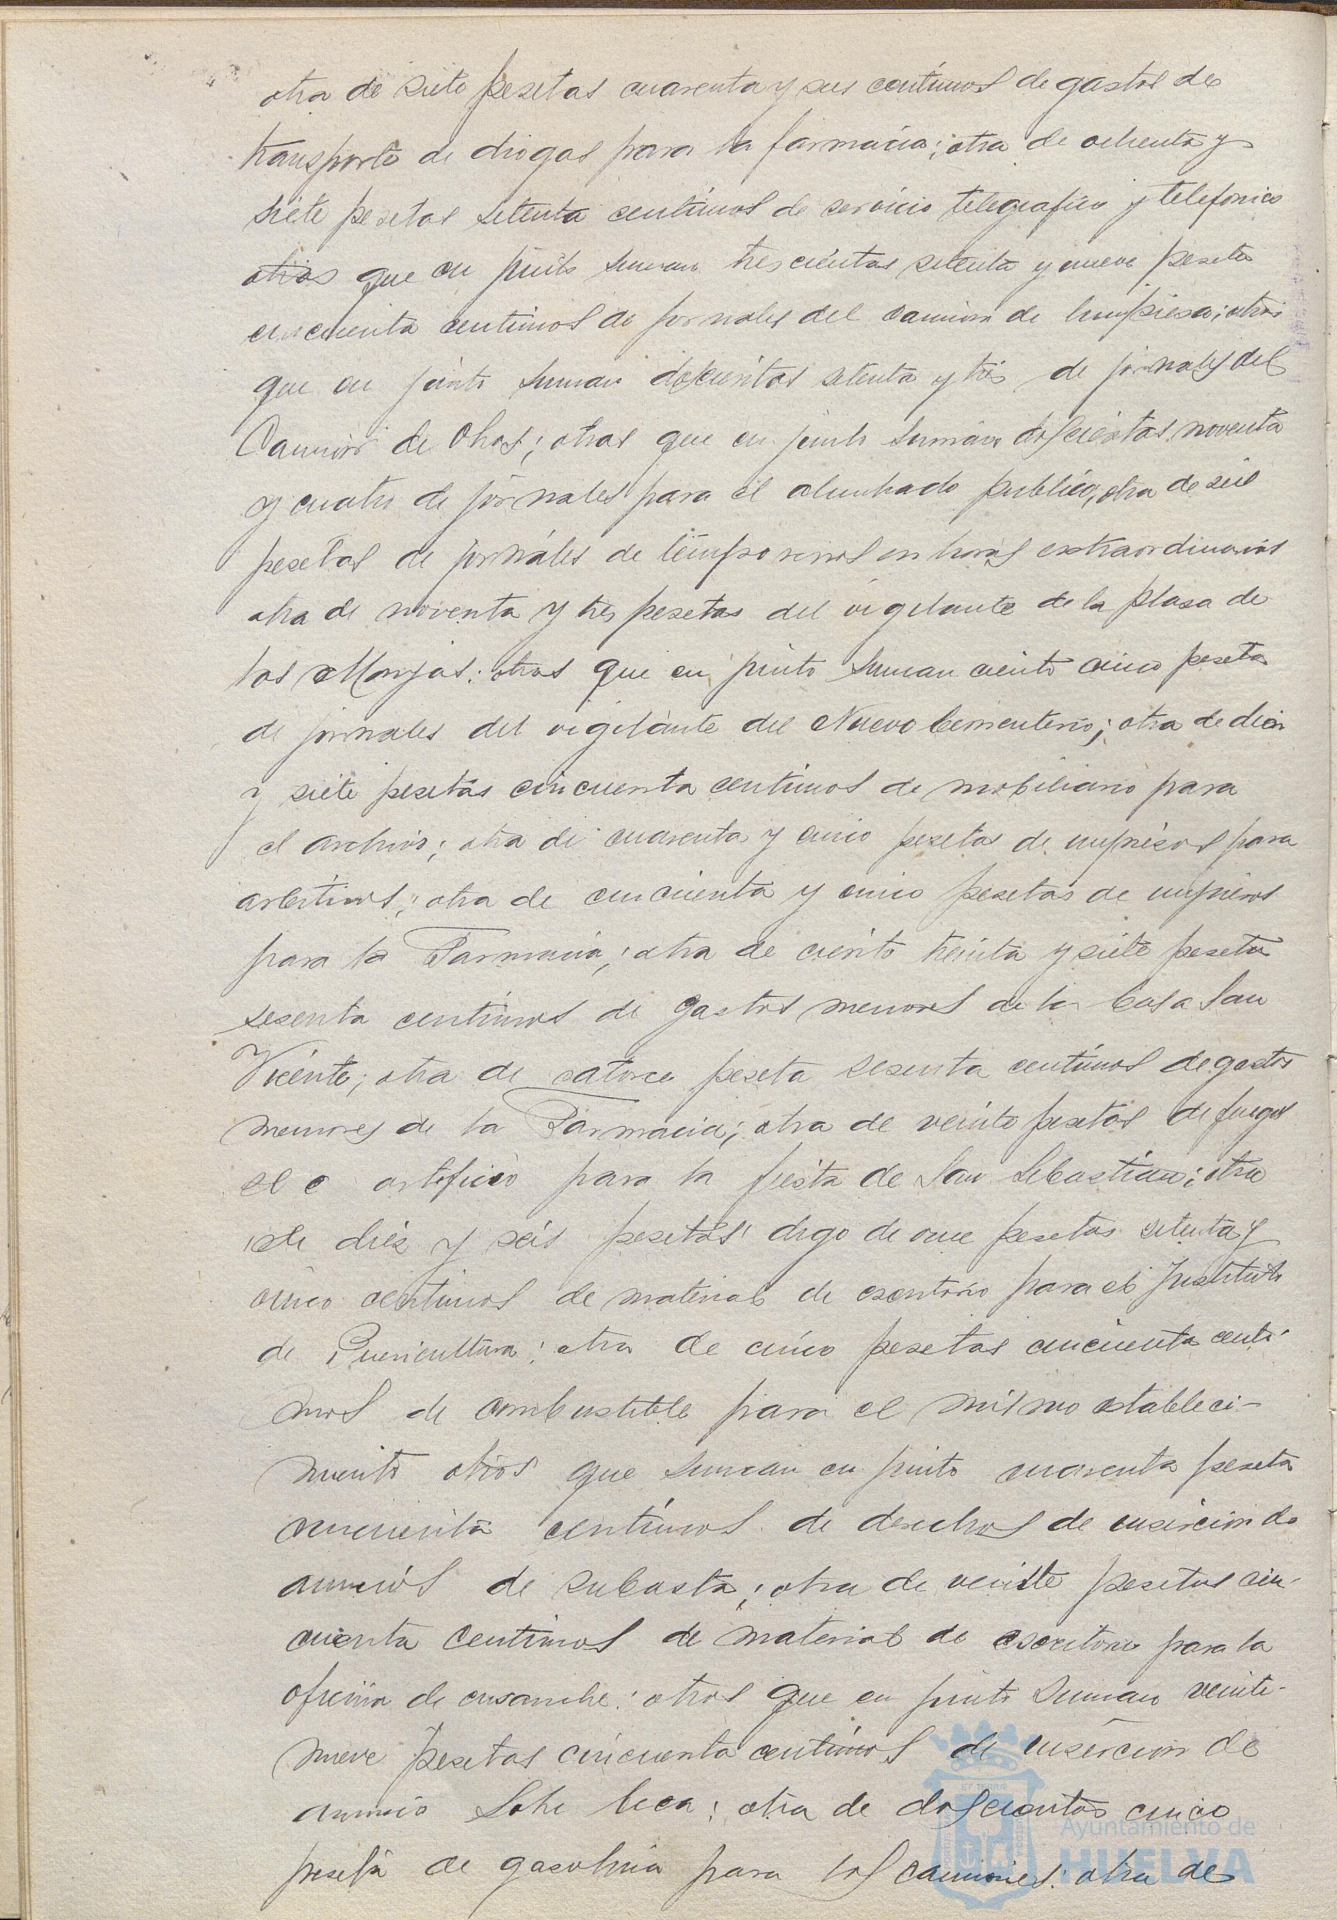 otra de siete pesetas cuarenta y seis centimos de gastos de
transporte de drogas para la farmacia; otra de ochenta y
siete pesetas setenta centimos de servicio telegrafico y telefonico
otras que en junto suman trescientas setenta y nueve peseta
cincuenta centimos de jornales del camion de limpieza; otras
que en junto suman doscientas setenta y tres de jornales del
Camion de Obras; otras que en junto suman doscientas noventa
y cuatro de jornales para el alumbrado publico, otra de seis
pesetas de jornales de temporeros en horas extraordinarias
otra de noventa y tres pesetas del vigilante de la plaza de
las Monjas; otras que en junto suman ciento cinco peseta
de jornales del vigilante del Nuevo Cementerio; otra de diez
y siete pesetas cincuenta centimos de mobiliario para
el archivo; otra de cuarenta y cinco pesetas de impresos para
arbitrios; otra de cincuenta y cinco pesetas de impresos
para la Farmacia; otra de ciento treinta y siete peseta
sesenta centimos de gastos menores de la Casa San
Vicente; otra de catorce peseta sesenta centimos de gastos
menores de la Farmacia; otra de veinte pesetas de fuegos
de artificio para la fiesta de San Sebastian; otra
de diez y seis pesetas digo de once pesetas setenta y
cinco centimos de material de escritorio para el Instituto
de Puericultura; otra de cinco pesetas cincuenta centi-
mos de combustible para el mismo estableci-
miento otros que suman en junto cuarenta peseta
cincuenta centimos de derechos de insercion de
anuncios de subasta; otra de veinte pesetas cin-
cuenta centimos de material de escritorio para la
oficina de ensanche; otros que en junto suman veinte-
nueve pesetas cincuenta centimos de insercion de
anuncio sobre beca; otra de doscientas cinco
peseta de gasolina para los camiones; otra de
Ayuntamiento de
HUELVA